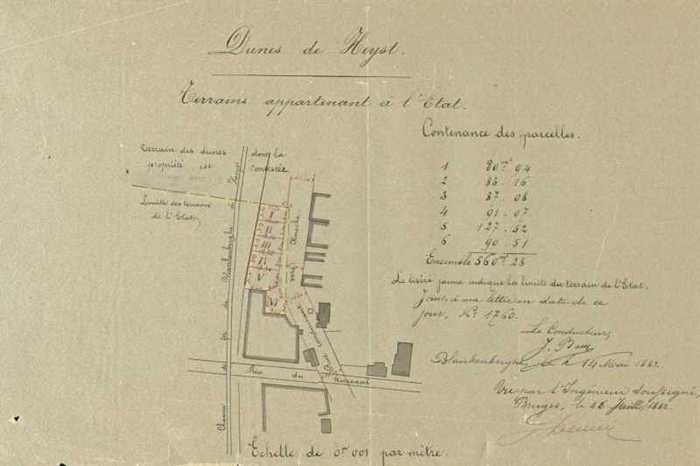 Dunes de Heyst.
Terrains appartenant à l'Etat.
Contenance des parcelles.
1 80 m² 94
2 86 . 16
3 87 . 08
4 91 . 07
5 127 . 52
6 90 . 51
Ensemble 560 m² 28
Le liséré jaune indique la limite du terrain de l'Etat.
Joint à ma lettre en date de ce
jour, N° 1760.
Le Conducteur,
Blankenberghe, le 14 Mai 1882.
Vu par l'Ingénieur soussigné,
Bruges, le
Terrain des dunes dont la
propriété est contestée
Limite des terrains
de l'Etat
Chemin de fer de Blankenberghe à Heyst
I
II
III
IV
V
VI
Rue du Kursaal
Echelle de 0m 001 par mètre.